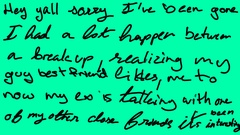 Hey yall sorry I've been gone
I had a lot happen between
a breakup, realizing my
guy best friends likes, me to
now my ex is talking with one
of my other close friends its been
intense